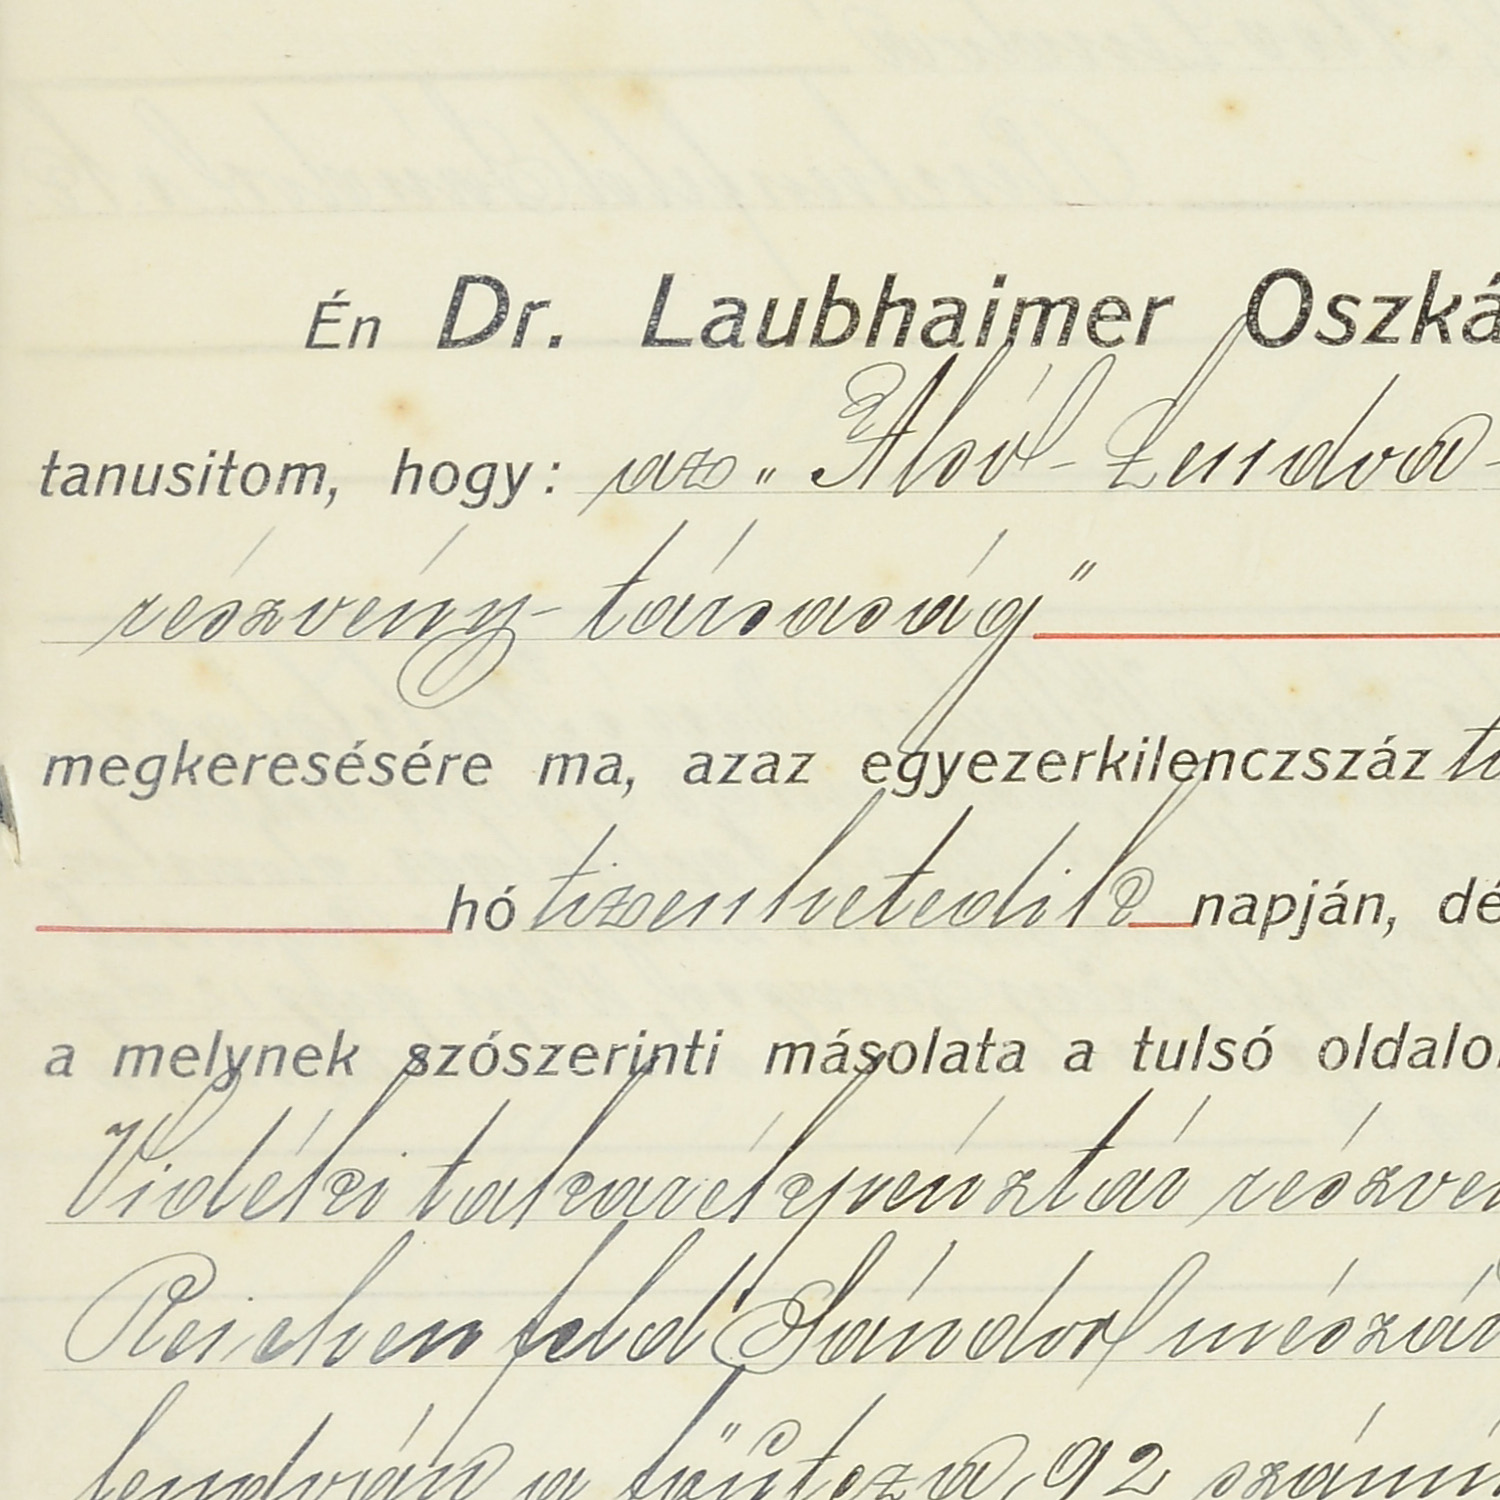 Én Dr. Laubhaimer Oszká
tanusitom, hogy: az „Alsó-Lendva-
részvény-társaság"
megkeresésére ma, azaz egyezerkilenczszáz ti
hó tizenhetedik napján, dé
a melynek szószerinti másolata a tulsó oldalo
Vidéki takarékpénztár részvén
Reichenfeld Sándor mészár
lendván a főútcza, 92 számú